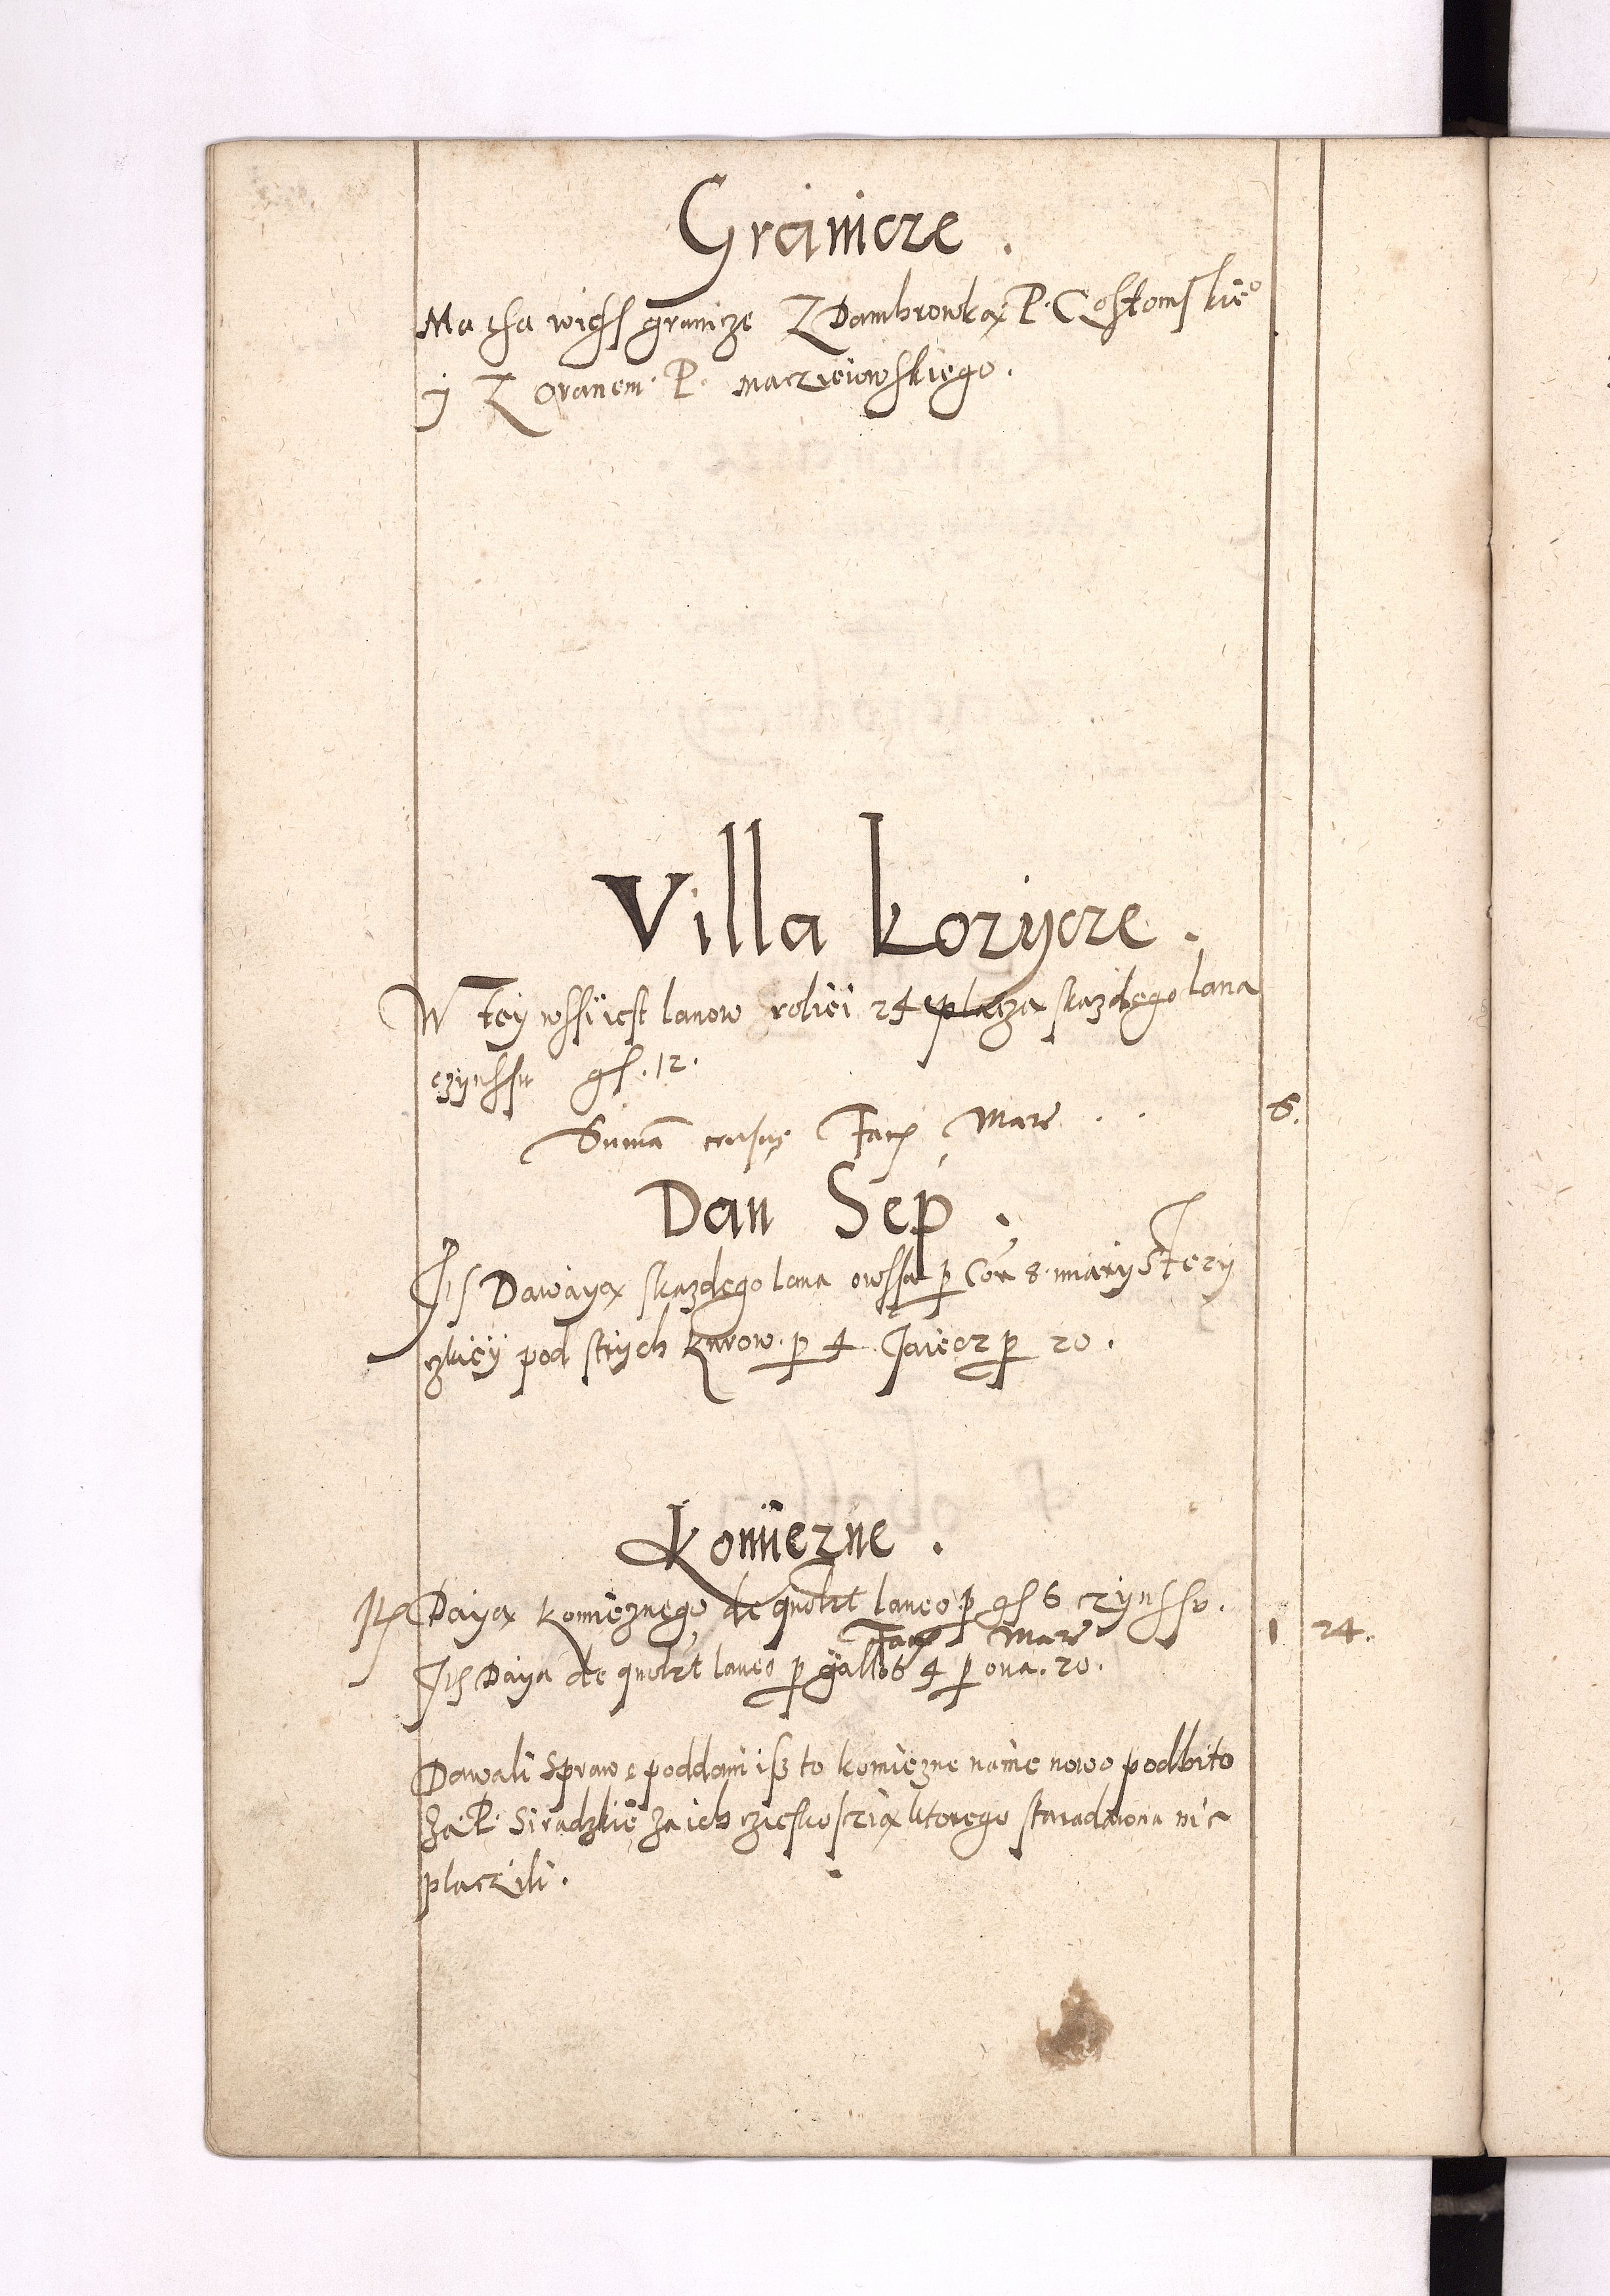 Granicze .
Ma tha wiess granicze Z Dambrowką P. Costomskie°
ÿ Z oranem P. maczieiowskiego .
Villa Kozÿcze .
W Teÿ wssi iest lanow roliei 24 placzą skazdego lana
czÿnssu gs. 12 .
Summa census Facit Mar . . 6.
Dan Sep .
Its Dawaÿą skazdego lana owssa p Cor 8 miarÿ
zkieÿ pod strÿch kurow p 4 Jaiecz p 20 .
Komiezne .
Its Daÿą komieznego de quolt laneo p gs 6 czÿnssu .
Facit Mar 1 24 .
Its Daÿa de quolt laneo p gallos 4 p oua . 20 .
Dawali Sprawę poddani isz to komiezne nanie nowo podbito
Za P. Siradzkie° za ich czieskosczią ktorego staradawna nie
placzili .